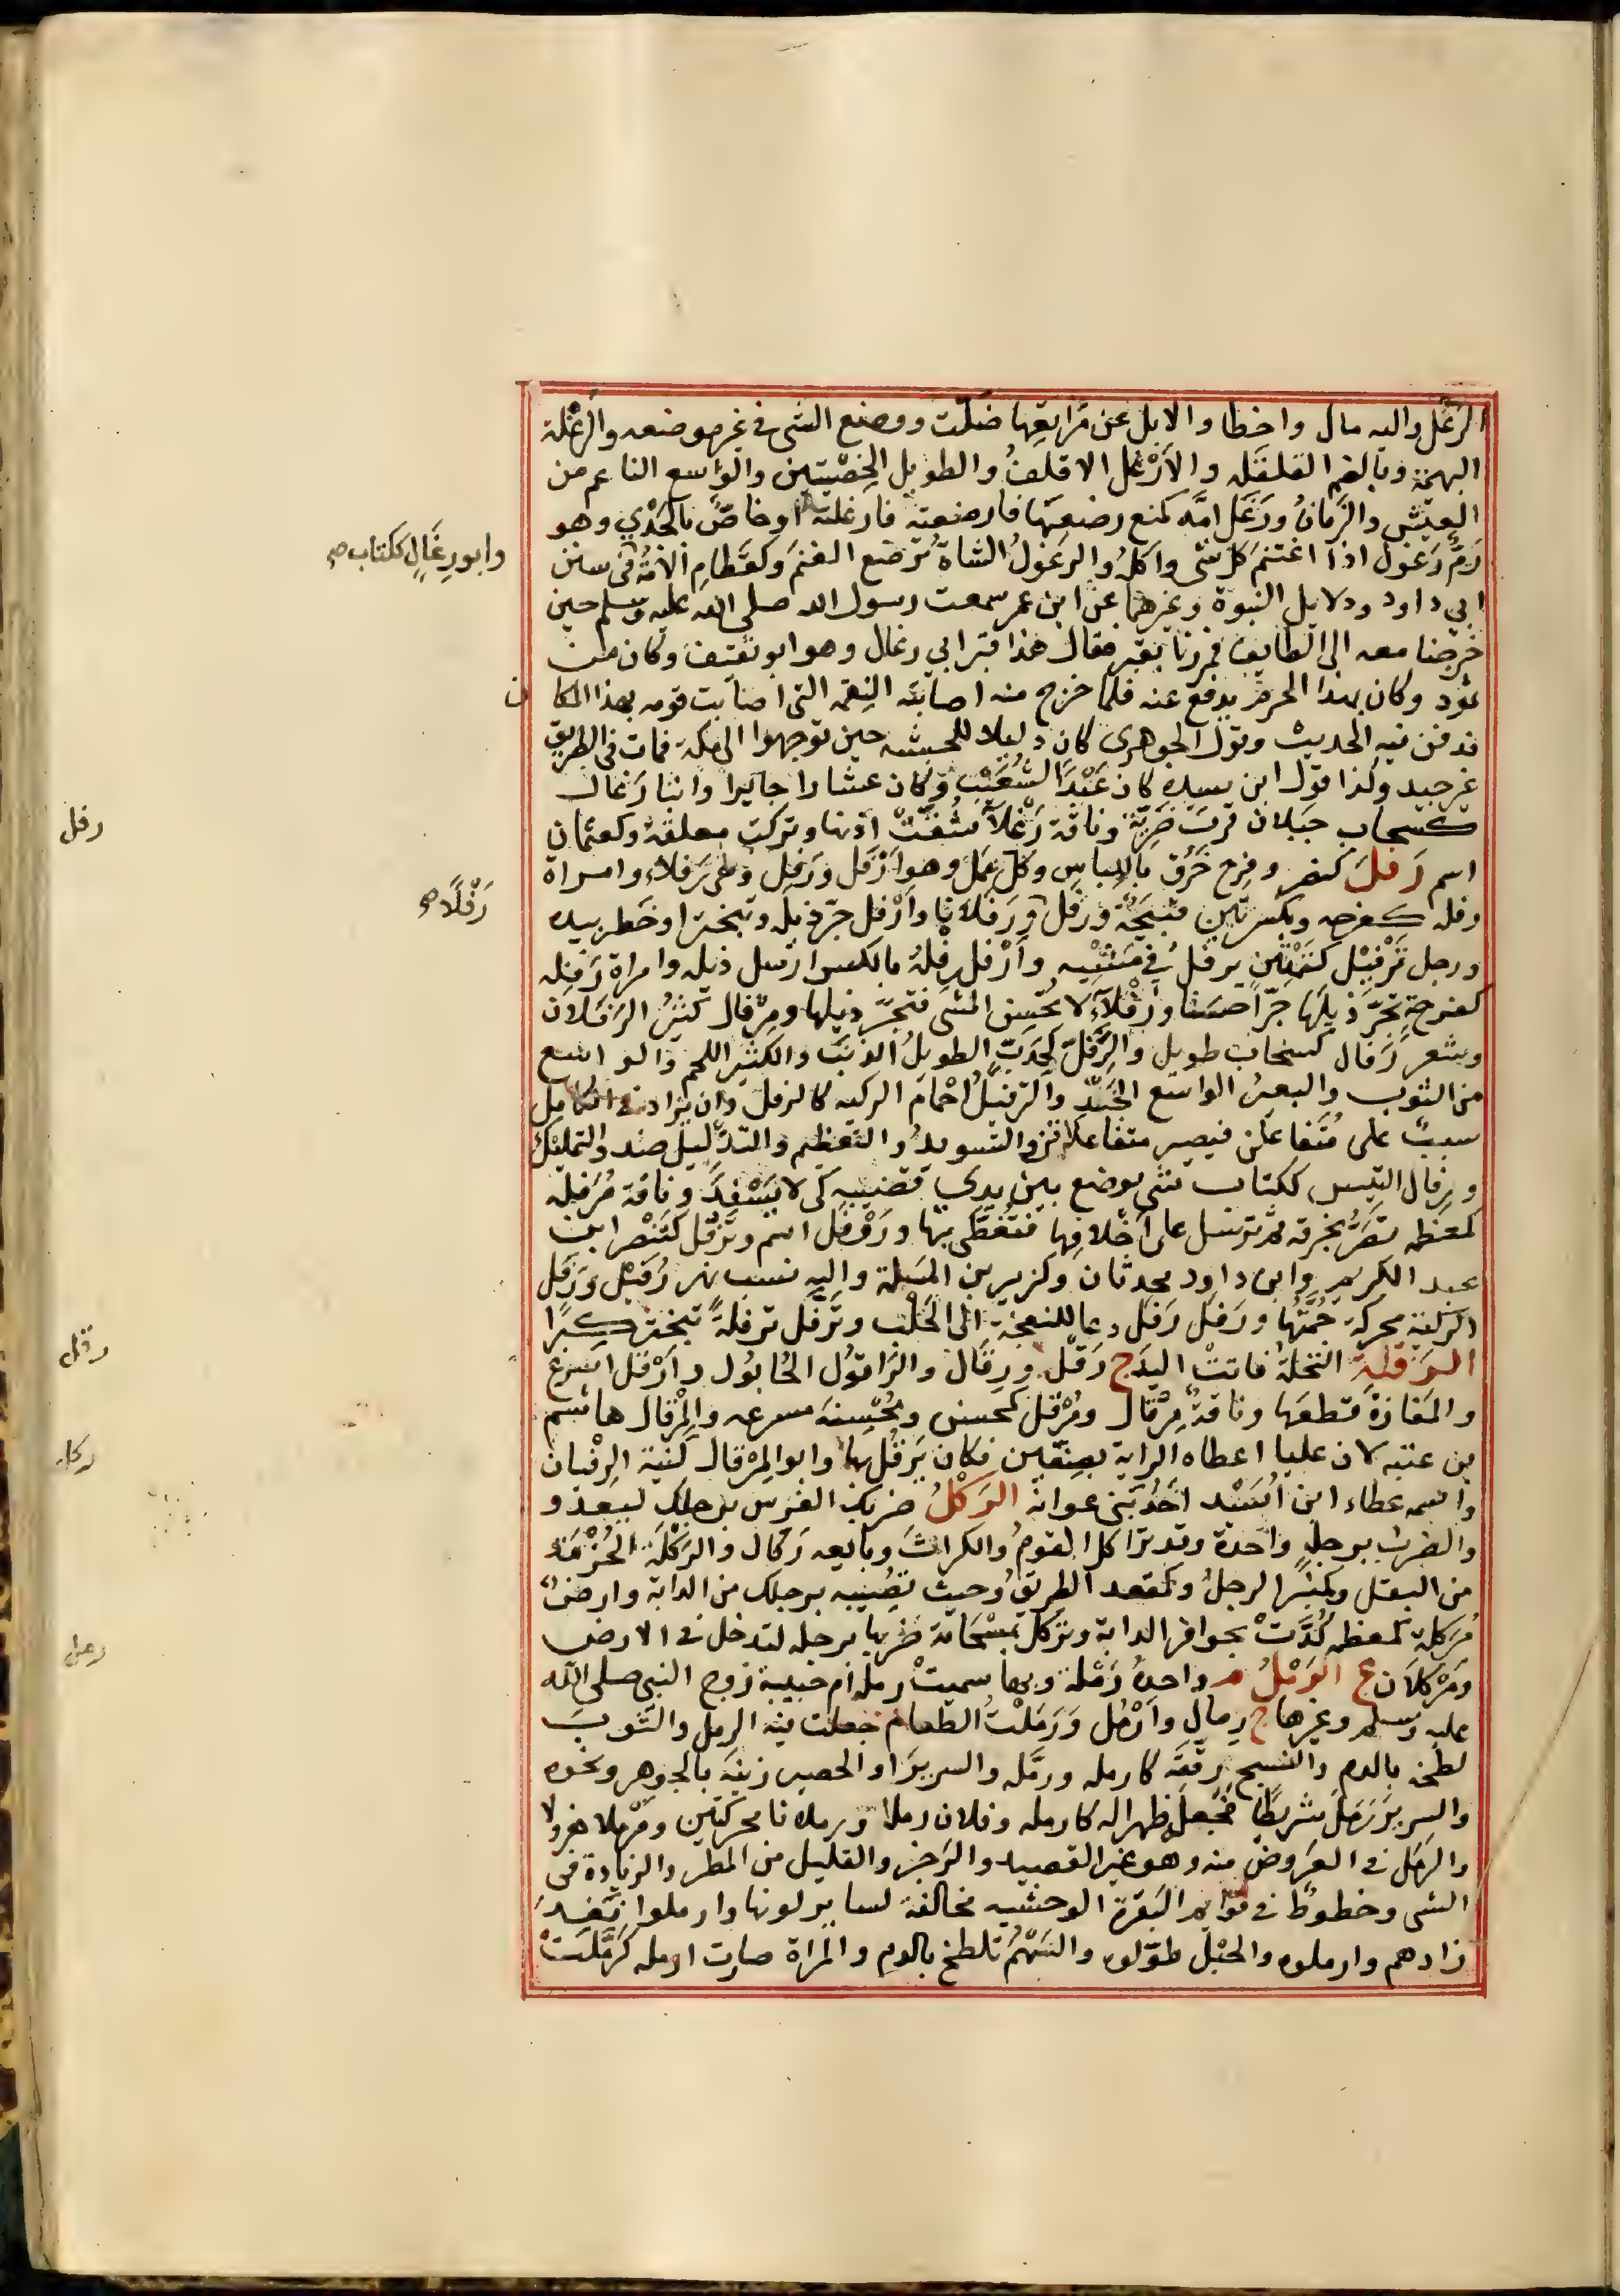 الرغل واليه مال واخطا والابل عن مراتعها ضلت ووضع الشى فى غير موضعه والرغلة
البهمة وبالضم القلفة والارغل الاقلف والطويل الخصيتين والواسع الناعم من
العيش والزمان ورغل امه كمنع رضعها فارضعته فارغلته او خاص بالجدي وهو
رم رغول اذا اغتنم كل شى واكله والرغول الشاة ترضع الغنم وكقطام الامة فى سنن
وابو رغال ككتاب صح
ابي داود ودلايل النبوة وغيرهما عن ابن عمر سمعت رسول الله صلى الله عليه وسلم حين
خرجنا معه الى الطايف فمررنا بقبر فقال هذا قبر ابي رغال وهو ابو ثقيف وكان من
ثمود وكان بهذا الحرم يدفع عنه فلما خرج منه اصابته النقمة التى اصابت قومه بهذا المكان
فدفن فيه الحديث وقول الجوهرى كان دليلا للحبشه حين توجهوا الى مكة فمات فى الطريق
غير جيد وكذا قول ابن سيده كان عبدا لشعيب وكان عشارا جايرا وابنا رغال
كسحاب جبلان قرب ضرية وناقة رغلآ شقت اذنها وتركت معلقة وكعثمان
رفل
اسم رفل كنصر وفرح خرق باللباس وكل عمل وهو ارفل ورفل وهى رفلاء وامراة
رفله كفرحه وبكسرتين قبيحة ورفل ورفلانا وارفل جر ذيله وتبختر او خطر بيده
رفلا صح
ورجل ترفيل كتمتين يرفل في مشيه وارفل رفله بالكسر ارسل ذيله وامراة رفله
كفرحة تجر ذيلها جرا حسنا ورفلآء لا تحسن المشى فتجر ذيلها ومرفال كثير الرفلان
وشعر رفال كسحاب طويل والرفل كخدب الطويل الذنب والكثير اللحم والواسع
من الثوب والبعير الواسع الجلد والترفيل اجمام الركيه كالرفل وان يزاد فى الكامل
سبب على متفاعلن فيصير متفاعلاتن والتسويد والتعظيم والتذليل ضد والتمليك
ورفال التيس ككتاب شى يوضع بين يدي قضيبه كى لا يسفد وناقة مرفله
كمعظمه تصر بخرقة ثم ترسل على اخلافها فتغطى بها وروفل اسم وترفل كتنصر ابن
عبد الكريم وابن داود محدثان وكزبير بن المسلة واليه نسب نهر رفيل ورفل
الركية محركة جمتها ورفل رفل دعا للنعجة الى الحلب وترفل ترفلة تبختر كبرا
رقل
الرقلة النخلة فاتت اليد ج رقل ورقال والراقول الحابول وارقل اسرع
والمفازة قطعها وناقة مرقال ومرقل كمحسن ومحسنة مسرعه والمرقال هاشم
بن عتبه لان عليا اعطاه الراية بصفين فكان يرقل بها وابو المرقال كنية الزفيان
ركل
واسمه عطاء ابن اسيد احد بنى عوانة الركل ضربك الفرس برجلك ليعدو
والضرب برجل واحدة وقد تراكل القوم والكراث وبايعه ركال والركلة الحزمة
من البقل وكمنبر الرجل وكمقعد الطريق وحيث تصيبه برجلك من الدابة وارض
مركلة كمعظمه كدت بحوافر الدابة وتركل بمسحاته ضربها برجله لتدخل فى الارض
رمل
ومركلان ع الرمل م واحده رملة وبها سميت رملة ام حبيبة زوج النبي صلى الله
عليه وسلم وغيرها ج رمال وارمل ورملت الطعام جعلت فيه الرمل والثوب
لطخه بالدم والنسج رققه كارمله ورمله والسرير او الحصير زينه بالجوهر ونحوه
والسرير رمل شريطا فجعله ظهرا له كارمله وفلان رملا ورملانا محركتين ومرملا هرول
والرمل فى العروض منه وهو غير القصيد والرجز والقليل من المطر والزيادة فى
الشى وخطوط فى قوايم البقرة الوحشيه مخالفة لساير لونها وارملوا نفد
زادهم وارملوه والحبل طولوه والسهم تلطخ بالدم والمراة صارت ارمله كرملت